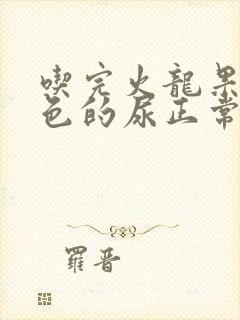 喫完火龍果
色的尿正常
羅晋